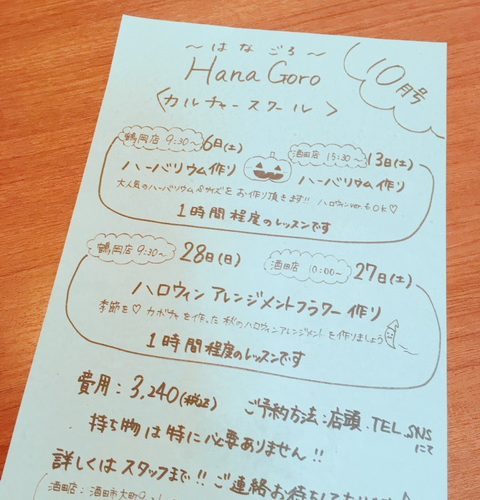 〜はなごろ〜
Hana Goro
10月号
〈カルチャースクール〉
鶴岡店 9:30〜 6日(土)
酒田店 15:30〜 13日(土)
ハーバリウム作り
ハーバリウム作り
大人気のハーバリウム サイズをお作り頂きます!! ハロウィンver.もOK♡
1時間程度のレッスンです
鶴岡店 9:30〜 28日(日)
酒田店 10:00〜 27日(土)
ハロウィンアレンジメントフラワー作り
季節を♡ カボチャを作った秋のハロウィンアレンジメントを作りましょう
1時間程度のレッスンです
費用:3,240(税込)
ご予約方法:店頭.TEL.SNSにて
持ち物は特に必要ありません!!
詳しくはスタッフまで!! ご連絡お待ちして
酒田店:酒田市大町9